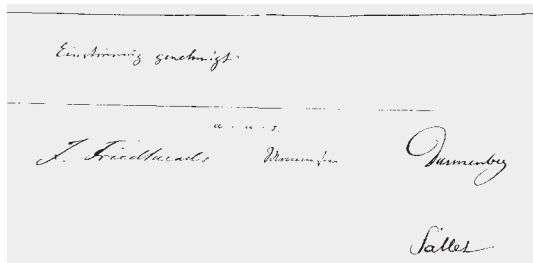 Einstimmig genehmigt.
a. u. s.
J. Friedlaender Mommsen Dannenberg
Sallet